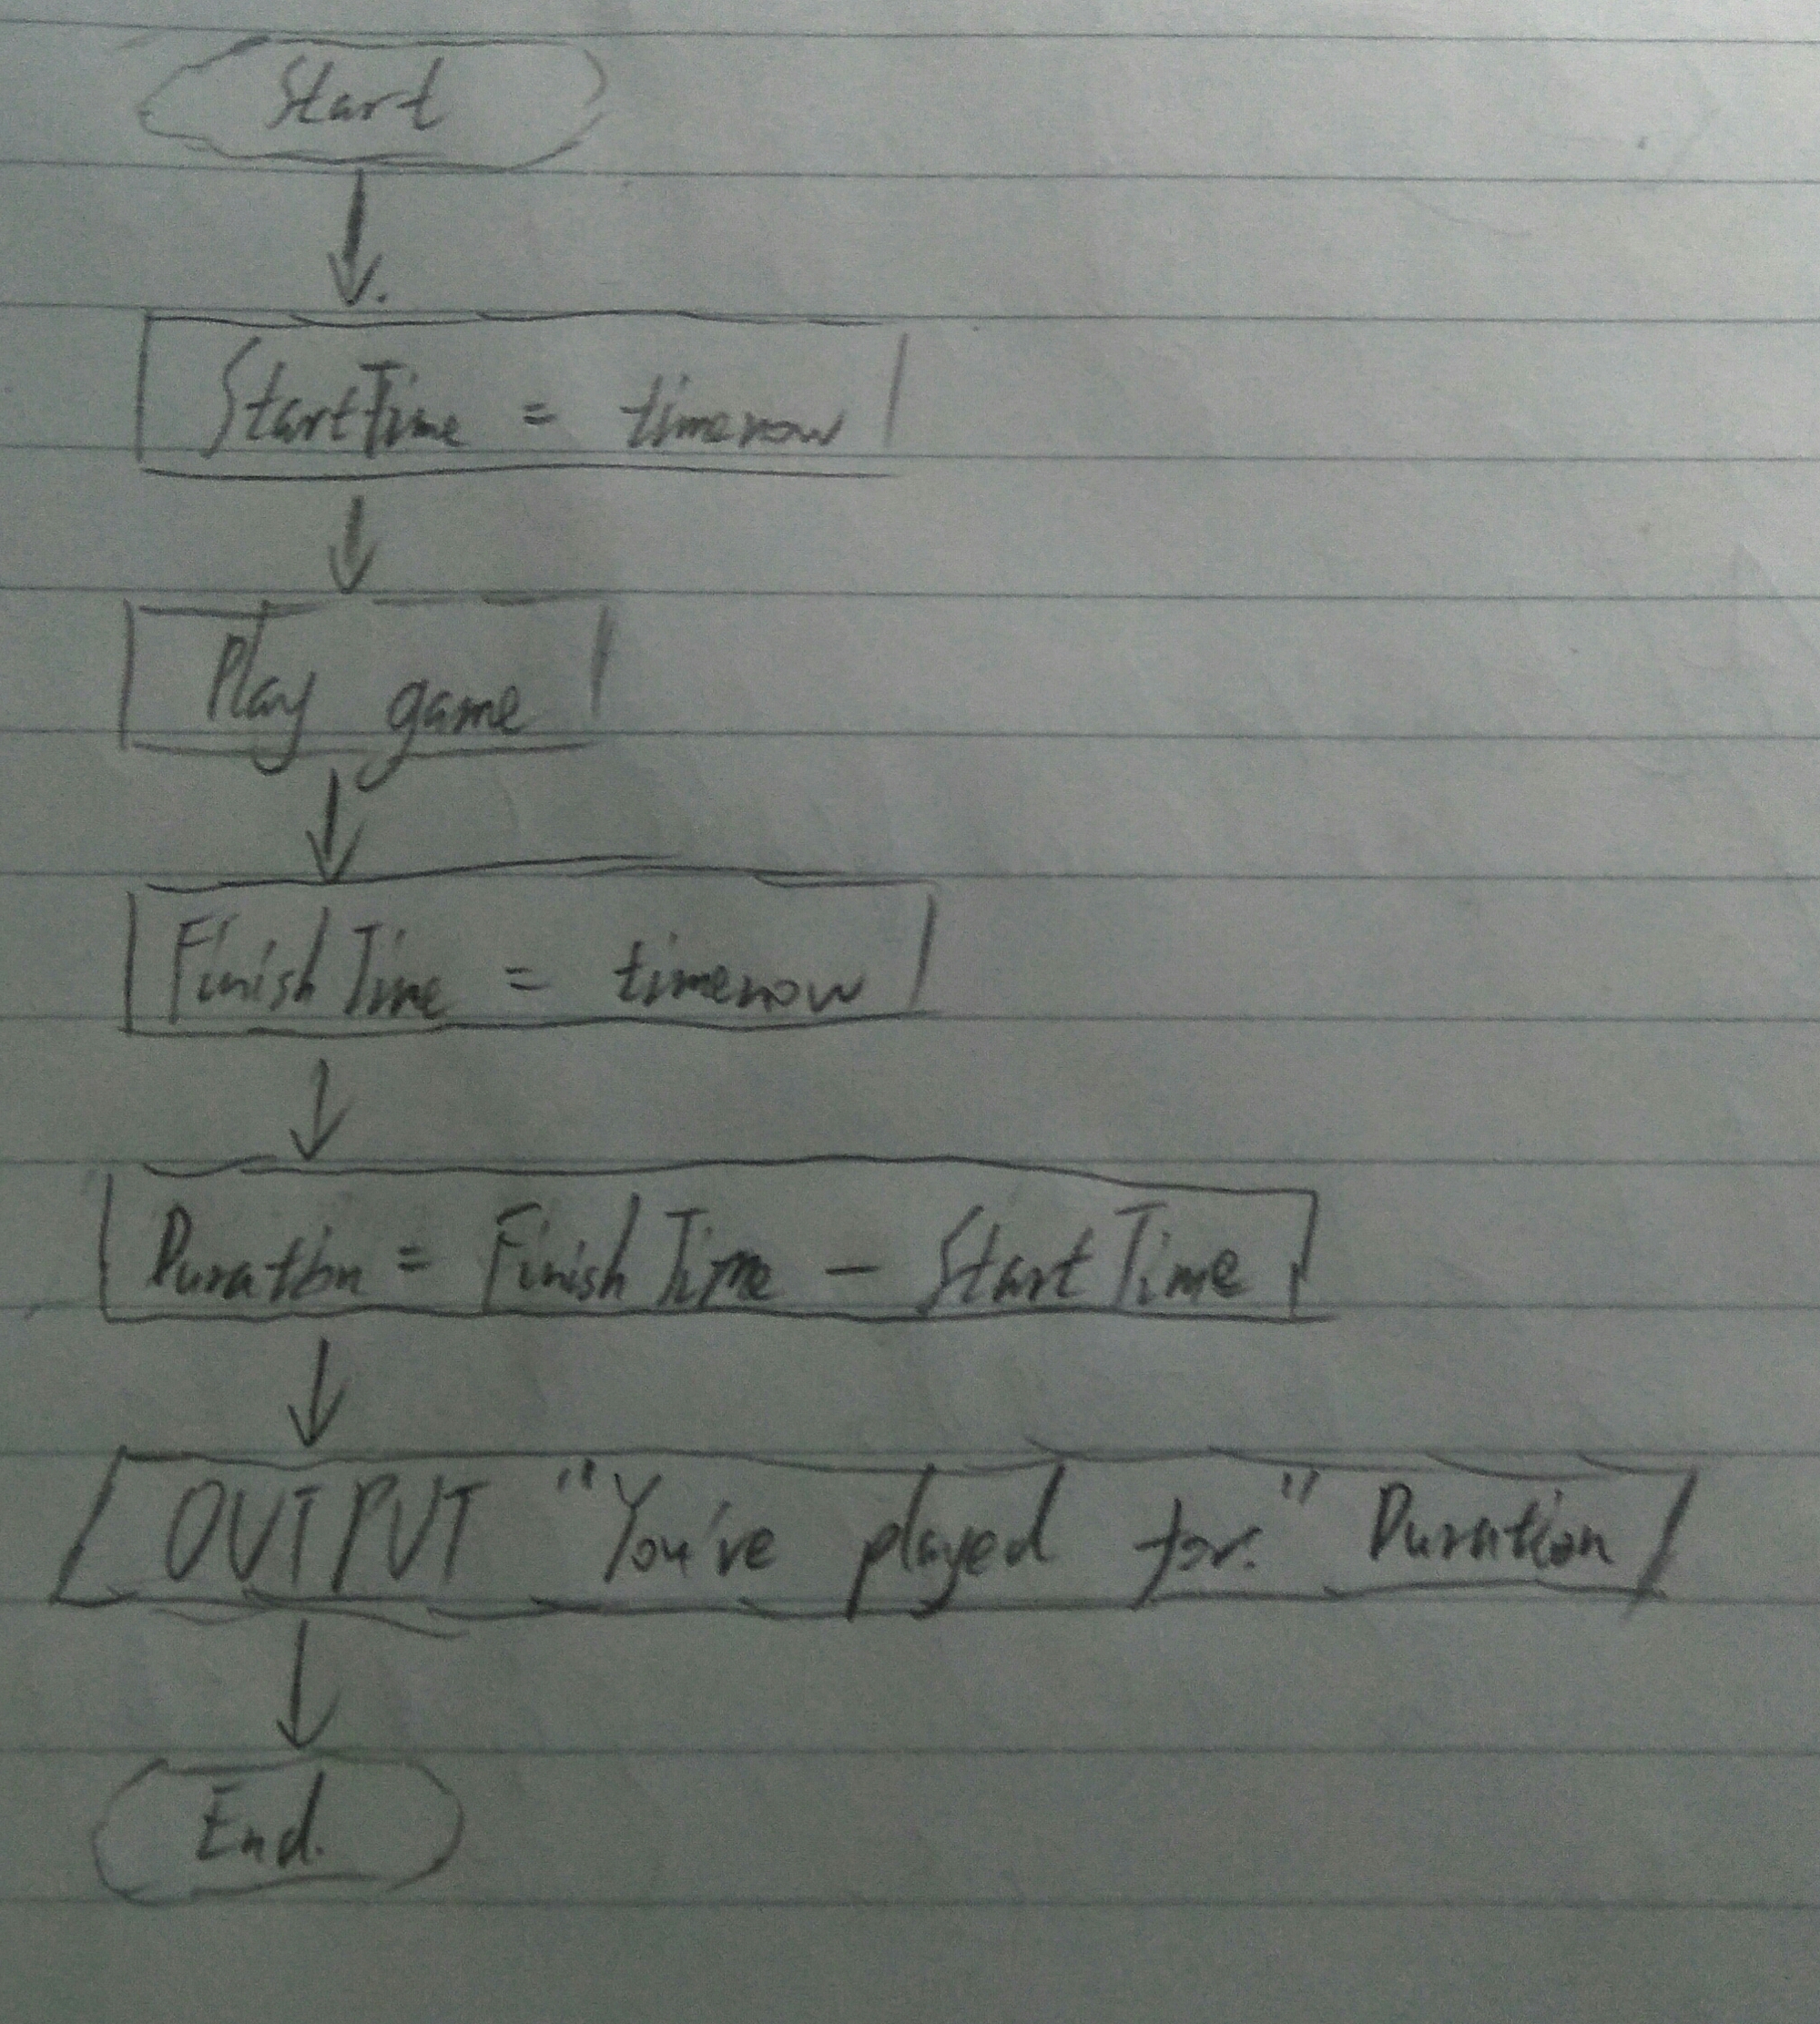 Start
StartTime = timenow
Play game
FinishTime = timenow
Duration = FinishTime - StartTime
OUTPUT "You've played for:" Duration
End.